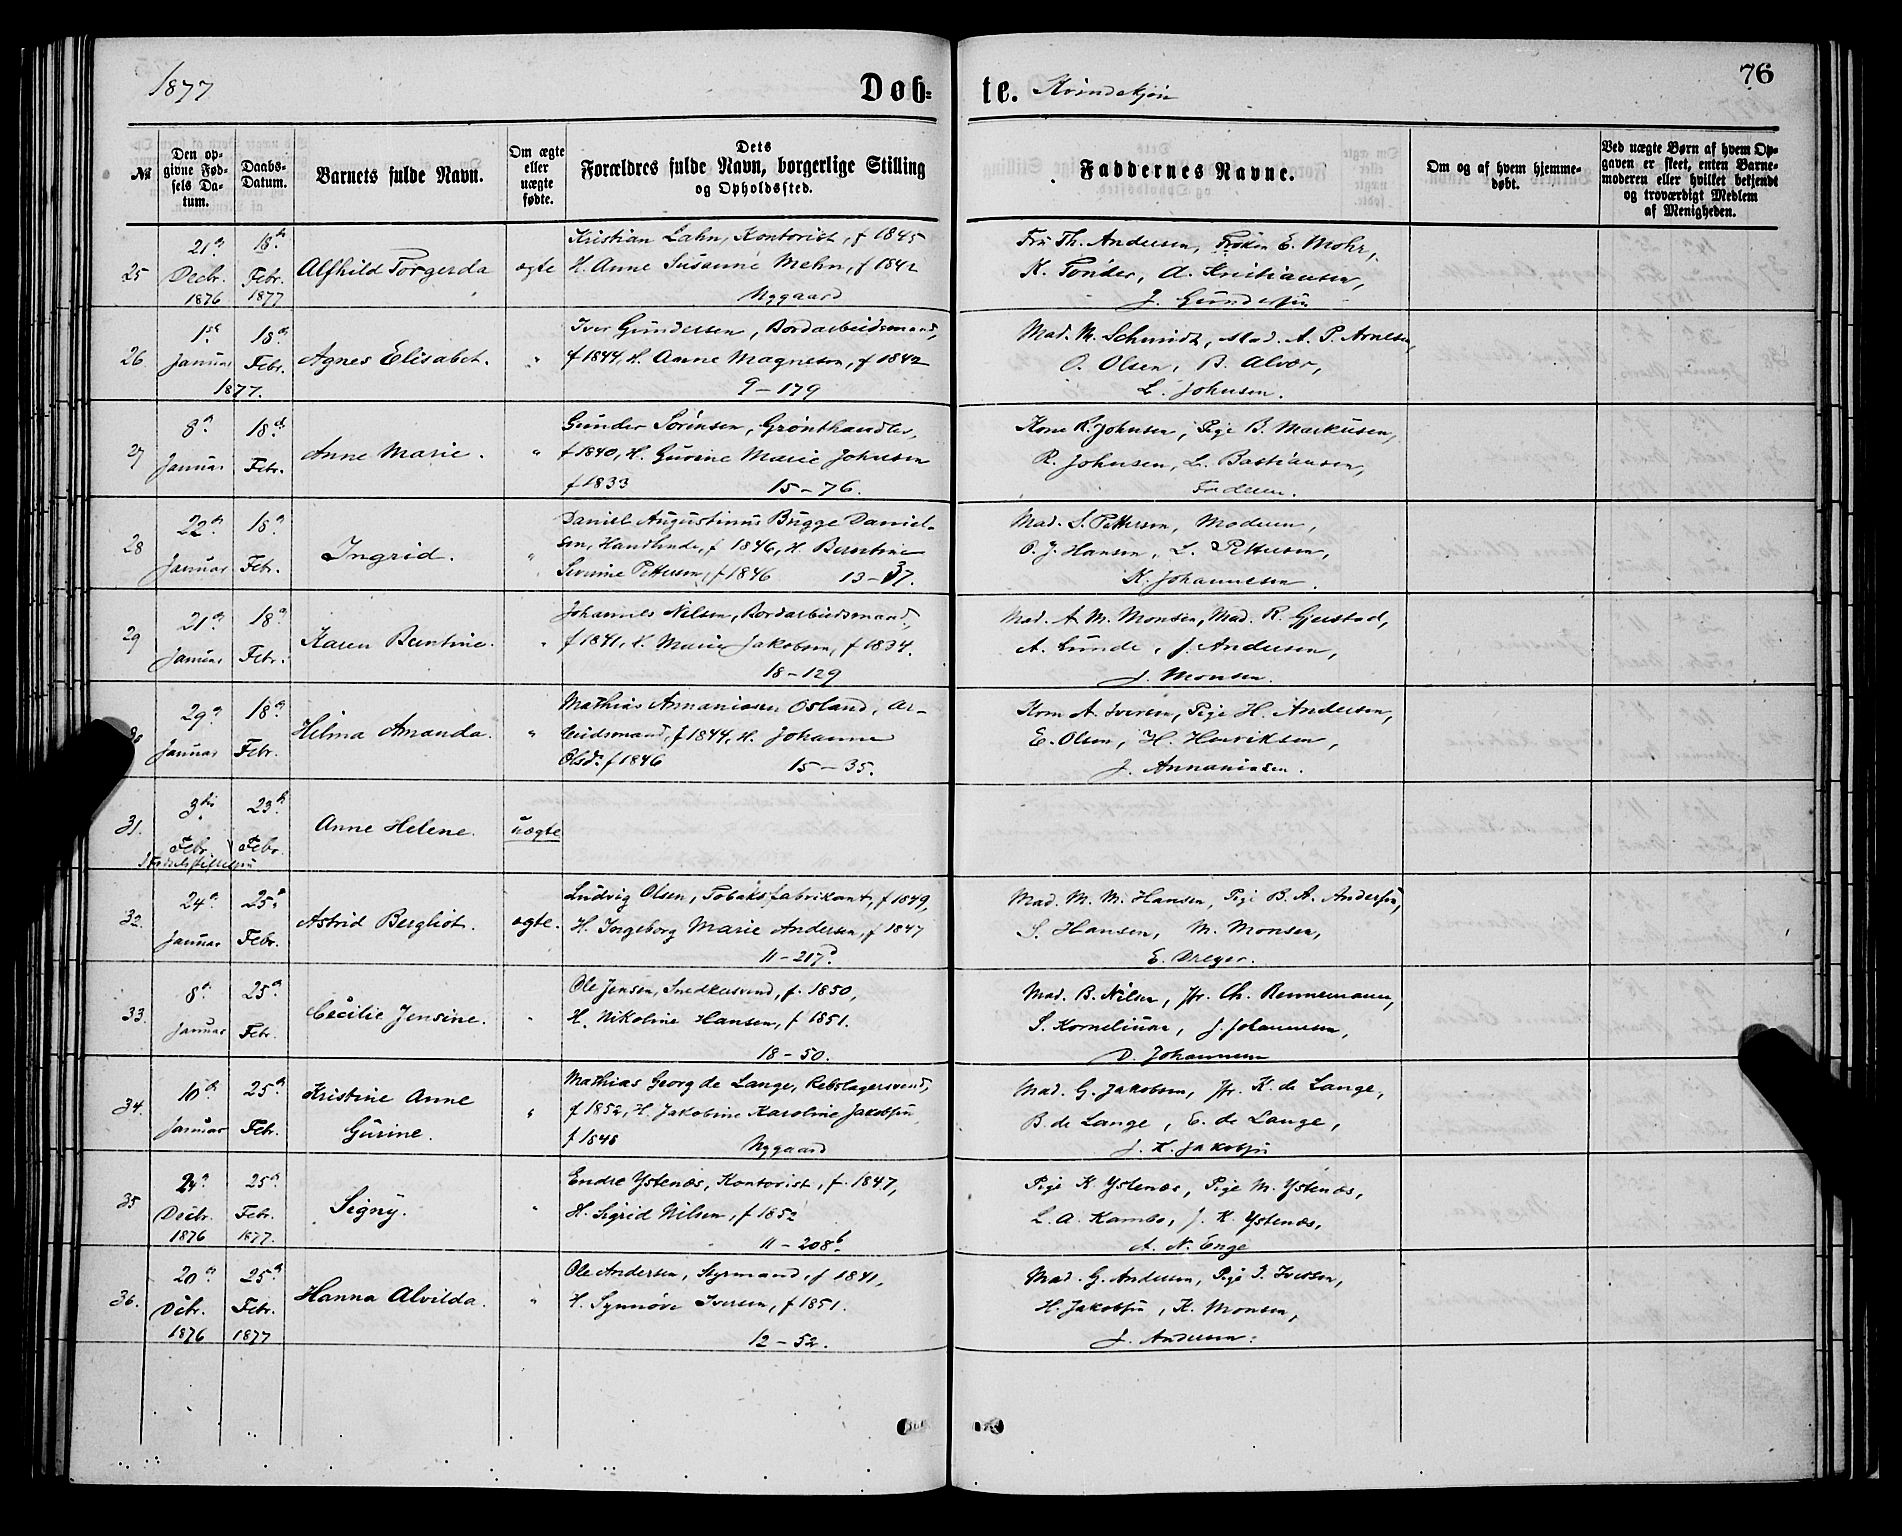 1877
Døb-
te. Kvindekjøn
76
№
Den op-
givne Fød-
sels Da-
tum.
Daabs-
Datum.
Barnets fulde Navn.
Om ægte
eller
uægte
fødte.
Dets
Forældres fulde Navn, borgerlige Stilling
og Opholdssted.
Faddernes Navne.
Om og af hvem hjemme-
døbt.
Ved uægte Børn af hvem Op-
gaven er skeet, enten Barne-
moderen eller hvilket bekjendt
og troværdigt Medlem
af Menigheden.
25
21
Decbr.
1876
18
Febr.
1877
Alfhild Torgerda
ægte
Kristian Lahn, Kontorist, f 1845
H. Anne Susanne Mehn, f 1842
Nygaard
Fru Th. Andersen, Frøken E. Mohr,
K. Tønder, A. Kristiansen,
J. Gundersen
26.
1
Januar
1877.
18
Febr.
Agnes Elisabet.
"
Iver Gundersen, Bordarbeidsmand,
f 1844, H. Anne Magnesen, f 1842
9 - 179
Mad. M. Schmidt, Mad. A. P. Arnesen,
O. Olsen, B. Alvær,
L. Johnsen.
27
8
Januar
18
Febr.
Anne Marie.
"
Gunder Sørensen, Grønthandler,
f 1840, H. Gurine Marie Johnsen
f 1833 15 - 76.
Kone R. Johnsen, Pige B. Markusen,
R. Johnsen, L. Bastiansen,
Faderen.
28
22
Januar
18
Febr.
Ingrid.
"
Daniel Augustinus Bugge Daniel-
sen, Handlende, f 1846, H. Berentine
Severine Pettersen, f 1846 13 - 37.
Mad. S. Pettersen, Moderen,
O. J. Hansen, L. Pettersen,
K. Johannesen.
29
21
Januar
18
Febr.
Karen Berntine.
"
Johannes Nilsen, Bordarbeidsmand,
f 1841, H. Marie Jakobsen, f 1834.
18 - 129
Mad. A. M. Monsen, Mad. R. Gjerstad,
A. Lunde, J. Andersen,
J. Monsen.
29
Januar
18
Febr.
Helma Amanda.
"
Mathias Annaniasen Osland, Ar-
beidsmand, f 1844, H. Johanne
Olsdr. f 1846 15 - 35.
Kone A. Iversen, Pige H. Andersen,
E. Olsen, H. Henriksen,
J. Annaniasen.
31.
3
Febr.
23
Febr.
Fødselsstiftelsen
Anne Helene.
uægte
32.
24
Januar
25
Febr.
Astrid Bergliot.
ægte.
Ludvig Olsen, Tobaksfabrikant, f 1849,
H. Ingeborg Marie Andersen, f 1847
11 - 217
Mad. M. M. Hansen, Pige B. A. Andersen,
S. Hansen, M. Monsen,
E. Dreyer.
33.
8
Januar
25
Febr.
Cecilie Jensine.
"
Ole Jensen, Snedkersvend, f. 1850,
H. Nikoline Hansen, f 1851.
18 - 50.
Mad. B. Nilsen, Jfr. Ch. Rennemann,
S. Korneliusen, J. Johannesen,
D. Johannesen
34.
10
Januar
25
Febr.
Kristine Anne
Gurine.
"
Mathias Georg de Lange, Rebslagersvend,
f 1852, H. Jakobine Karoline Jakobsen
f 1848 Nygaard
Mad. G. Jakobsen, Jfr. K. de Lange,
B. de Lange, E. de Lange,
J. K. Jakobsen
35
24
Decbr.
1876
25
Febr.
1877.
Signy.
"
Endre Ystenæs, Kontorist, f. 1847,
H. Sigrid Nilsen, f 1852
11 - 208b.
Pige K. Ystenæs, Pige M. Ystenæs,
L. A. Kambo, J. K. Ystenæs,
A. N. Enge
36.
20
Decbr.
1876
25
Febr.
1877
Hanna Alvilda.
"
Ole Andersen, Styrmand, f 1841,
H. Synnøve Iversen, f 1851.
12 - 52.
Mad. G. Andersen, Pige I. Iversen,
H. Jakobsen, K. Monsen,
J. Andersen.